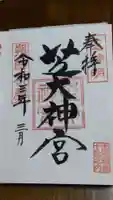 奉拝
芝大神宮
令和三年 三月